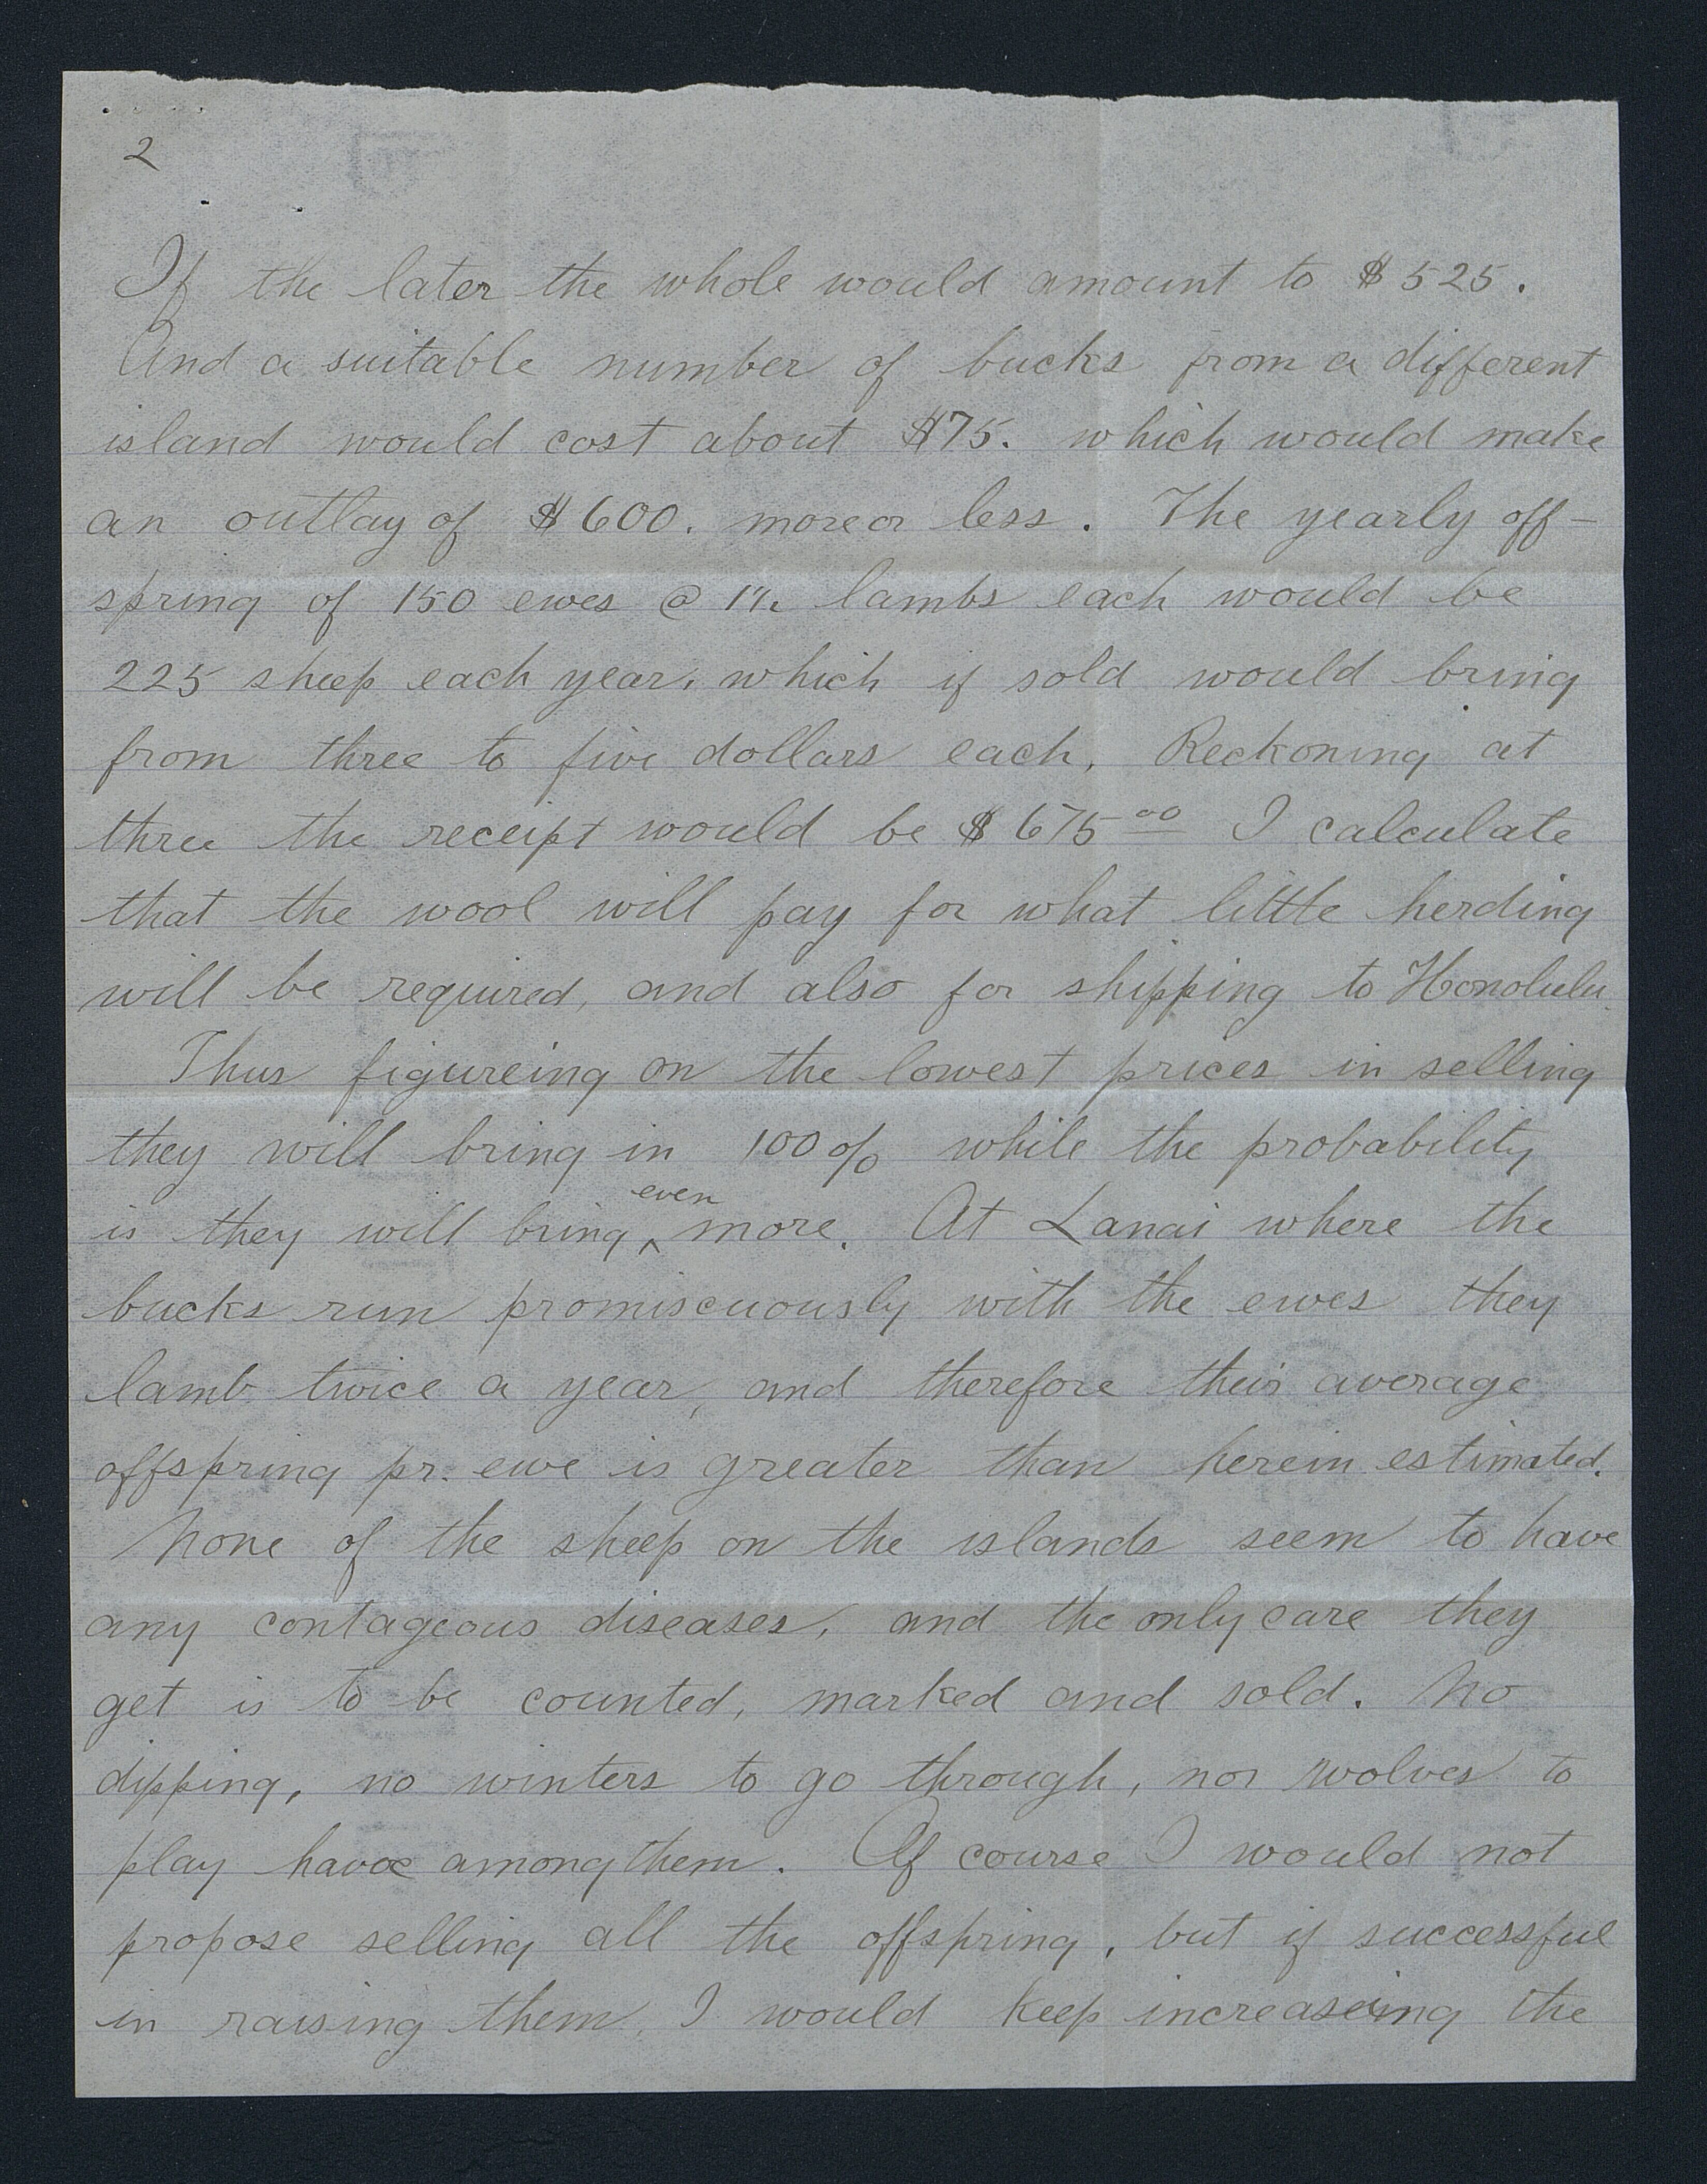 2
If the later the whole would amount to $525.
And a suitable number of bucks from a different
island would cost about $75. which would make
an outlay of $600. more or less. The yearly off-
spring of 150 ewes @ 1½ lambs each would be
225 sheep each year, which if sold would bring
from three to five dollars each. Reckoning at
three the receipt would be $675 00 I calculate
that the wool will pay for what little herding
will be required, and also for shipping to Honolulu.
Thus figureing on the lowest prices in selling
they will bring in 100% while the probability
is they will bring ^even more. At Lanai where the
bucks run promiscuously with the ewes they
lamb twice a year, and therefore their average
offspring pr. ewe is greater than herein estimated.
None of the sheep on the islands seem to have
any contageous diseases, and the only care they
get is to be counted, marked and sold. No
dipping, no winters to go through, nor wolves to
play havoc among them. Of course I would not
propose selling all the offspring, but if successful
in raising them, I would keep increaseing the